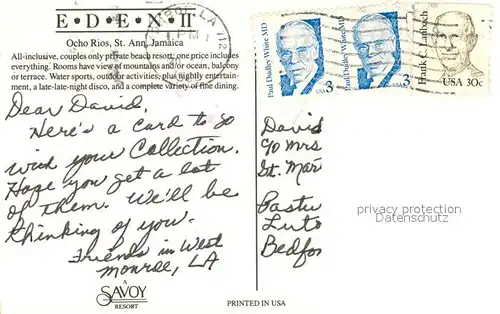 E • D • E • N • II
Ocho Rios, St. Ann, Jamaica
All-inclusive, couples only private beach resort; one price includes
everything. Rooms have view of mountains and/or ocean, balcony
or terrace. Water sports, outdoor activities, plus nightly entertain-
ment, a late-late-night disco, and a complete variety of fine dining.
Dear David,
Here's a card to go
with your Collection.
Hope you get a lot
of them. We'll be
thinking of you.
Friends in West
Monroe, LA
A
SAVOY
RESORT
LA 712
PM
Paul Dudley White MD
3
Paul Dudley White MD
3
USA 30c
David
c/o Mrs
St. Mar
Pastu
Luto
Bedfor
privacy protection
Sammler.com
PRINTED IN USA